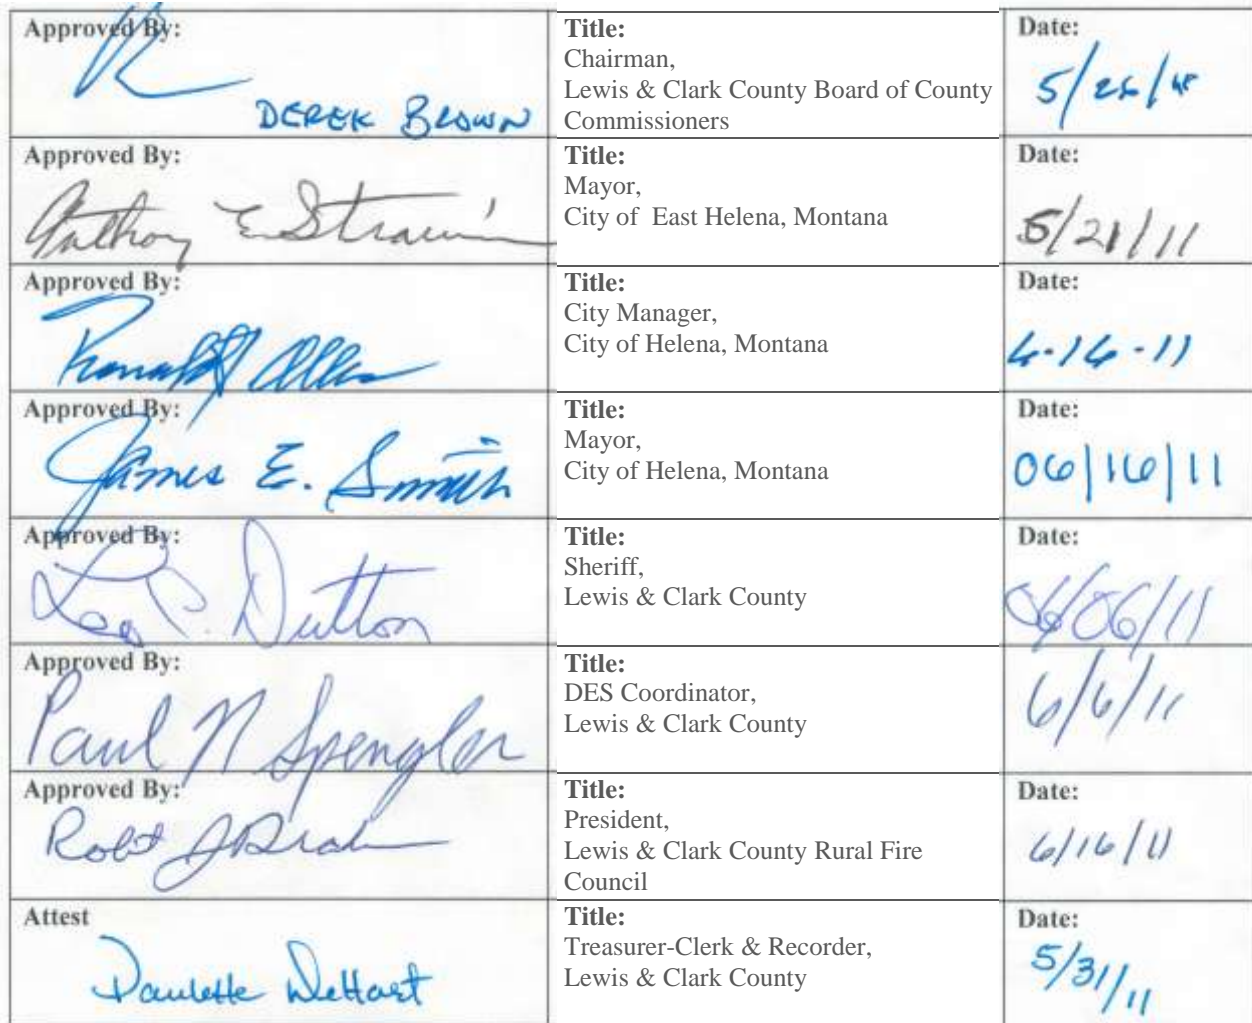 Approved By:
DEREK BROWN
Title:
Chairman,
Lewis & Clark County Board of County
Commissioners
Date:
Approved By:
Anthony E. Strainer
Title:
Mayor,
City of East Helena, Montana
Date:
5/21/11
Approved By:
Ronald J Alles
Title:
City Manager,
City of Helena, Montana
Date:
6-16-11
Approved By:
James E. Smith
Title:
Mayor,
City of Helena, Montana
Date:
06/16/11
Approved By:
Leo C. Dutton
Title:
Sheriff,
Lewis & Clark County
Date:
06/06/11
Approved By:
Paul N Spengler
Title:
DES Coordinator,
Lewis & Clark County
6/6/11
Approved By:
Robt J Drake
Title:
President,
Lewis & Clark County Rural Fire
Council
Date:
6/16/11
Attest
Paulette DeHart
Title:
Treasurer-Clerk & Recorder,
Lewis & Clark County
Date:
5/31/11